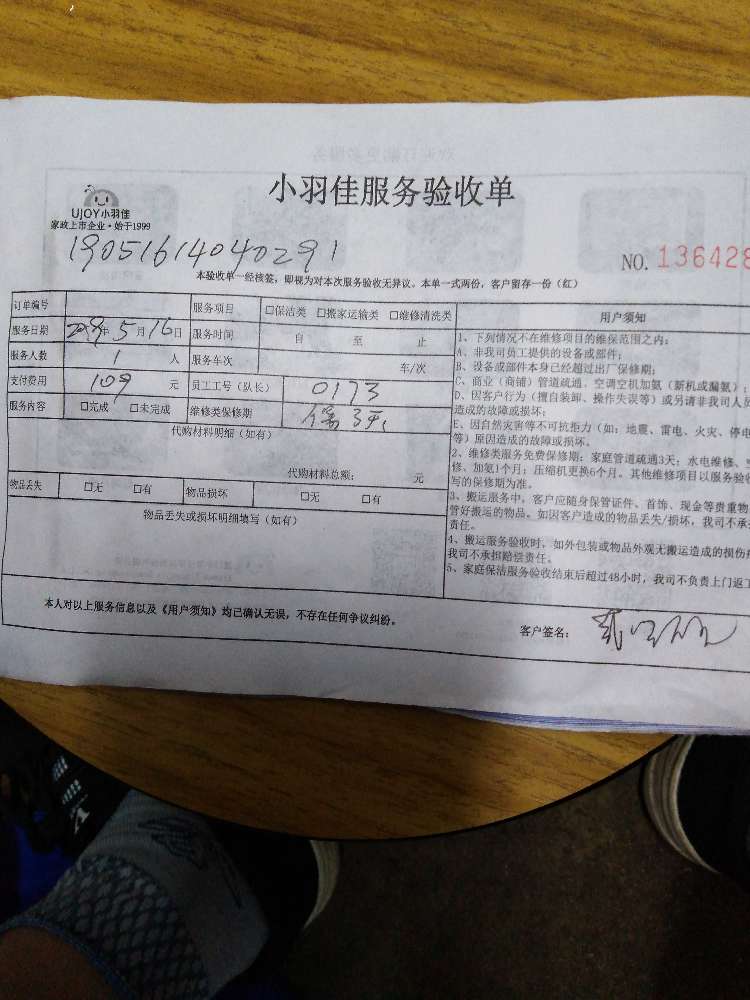 小羽佳服务验收单
UJOY小羽佳
家政上市企业·始于1999
19051614040291
NO. 136428
本验收单一经核签，即视为对本次服务验收无异议。本单一式两份，客户留存一份（红）
订单编号 服务项目 □保洁类 □搬家运输类 □维修清洗类
服务日期 2019年5月16日 服务时间 自 至 止
服务人数 1 人 服务车次 车/次
支付费用 109 元 员工工号（队长） 0173
服务内容 □完成 □未完成 维修类保修期
代购材料明细（如有）
代购材料总额： 元
物品丢失 □无 □有 物品损坏 □无 □有
物品丢失或损坏明细填写（如有）
用户须知
1、下列情况不在维修项目的维保范围之内：
A、非我司员工提供的设备或部件；
B、设备或部件本身已经超过出厂保修期；
C、商业（商铺）管道疏通、空调空机加氨（新机或漏氨）；
D、因客户行为（擅自装卸、操作失误等）或另请非我司人员
造成的故障或损坏；
E、因自然灾害等不可抗拒力（如：地震、雷电、火灾、停电
等）原因造成的故障或损坏。
2、维修类服务免费保修期：家庭管道疏通3天；水电维修、
修、加氨1个月；压缩机更换6个月。其他维修项目以服务验收
写的保修期为准。
3、搬运服务中，客户应随身保管证件、首饰、现金等贵重物
管好搬运的物品。如因客户造成的物品丢失/损坏，我司不承担
责任。
4、搬运服务验收时，如外包装或物品外观无搬运造成的损伤
我司不承担赔偿责任。
5、家庭保洁服务验收结束后超过48小时，我司不负责上门返工
本人对以上服务信息以及《用户须知》均已确认无误，不存在任何争议纠纷。
客户签名：